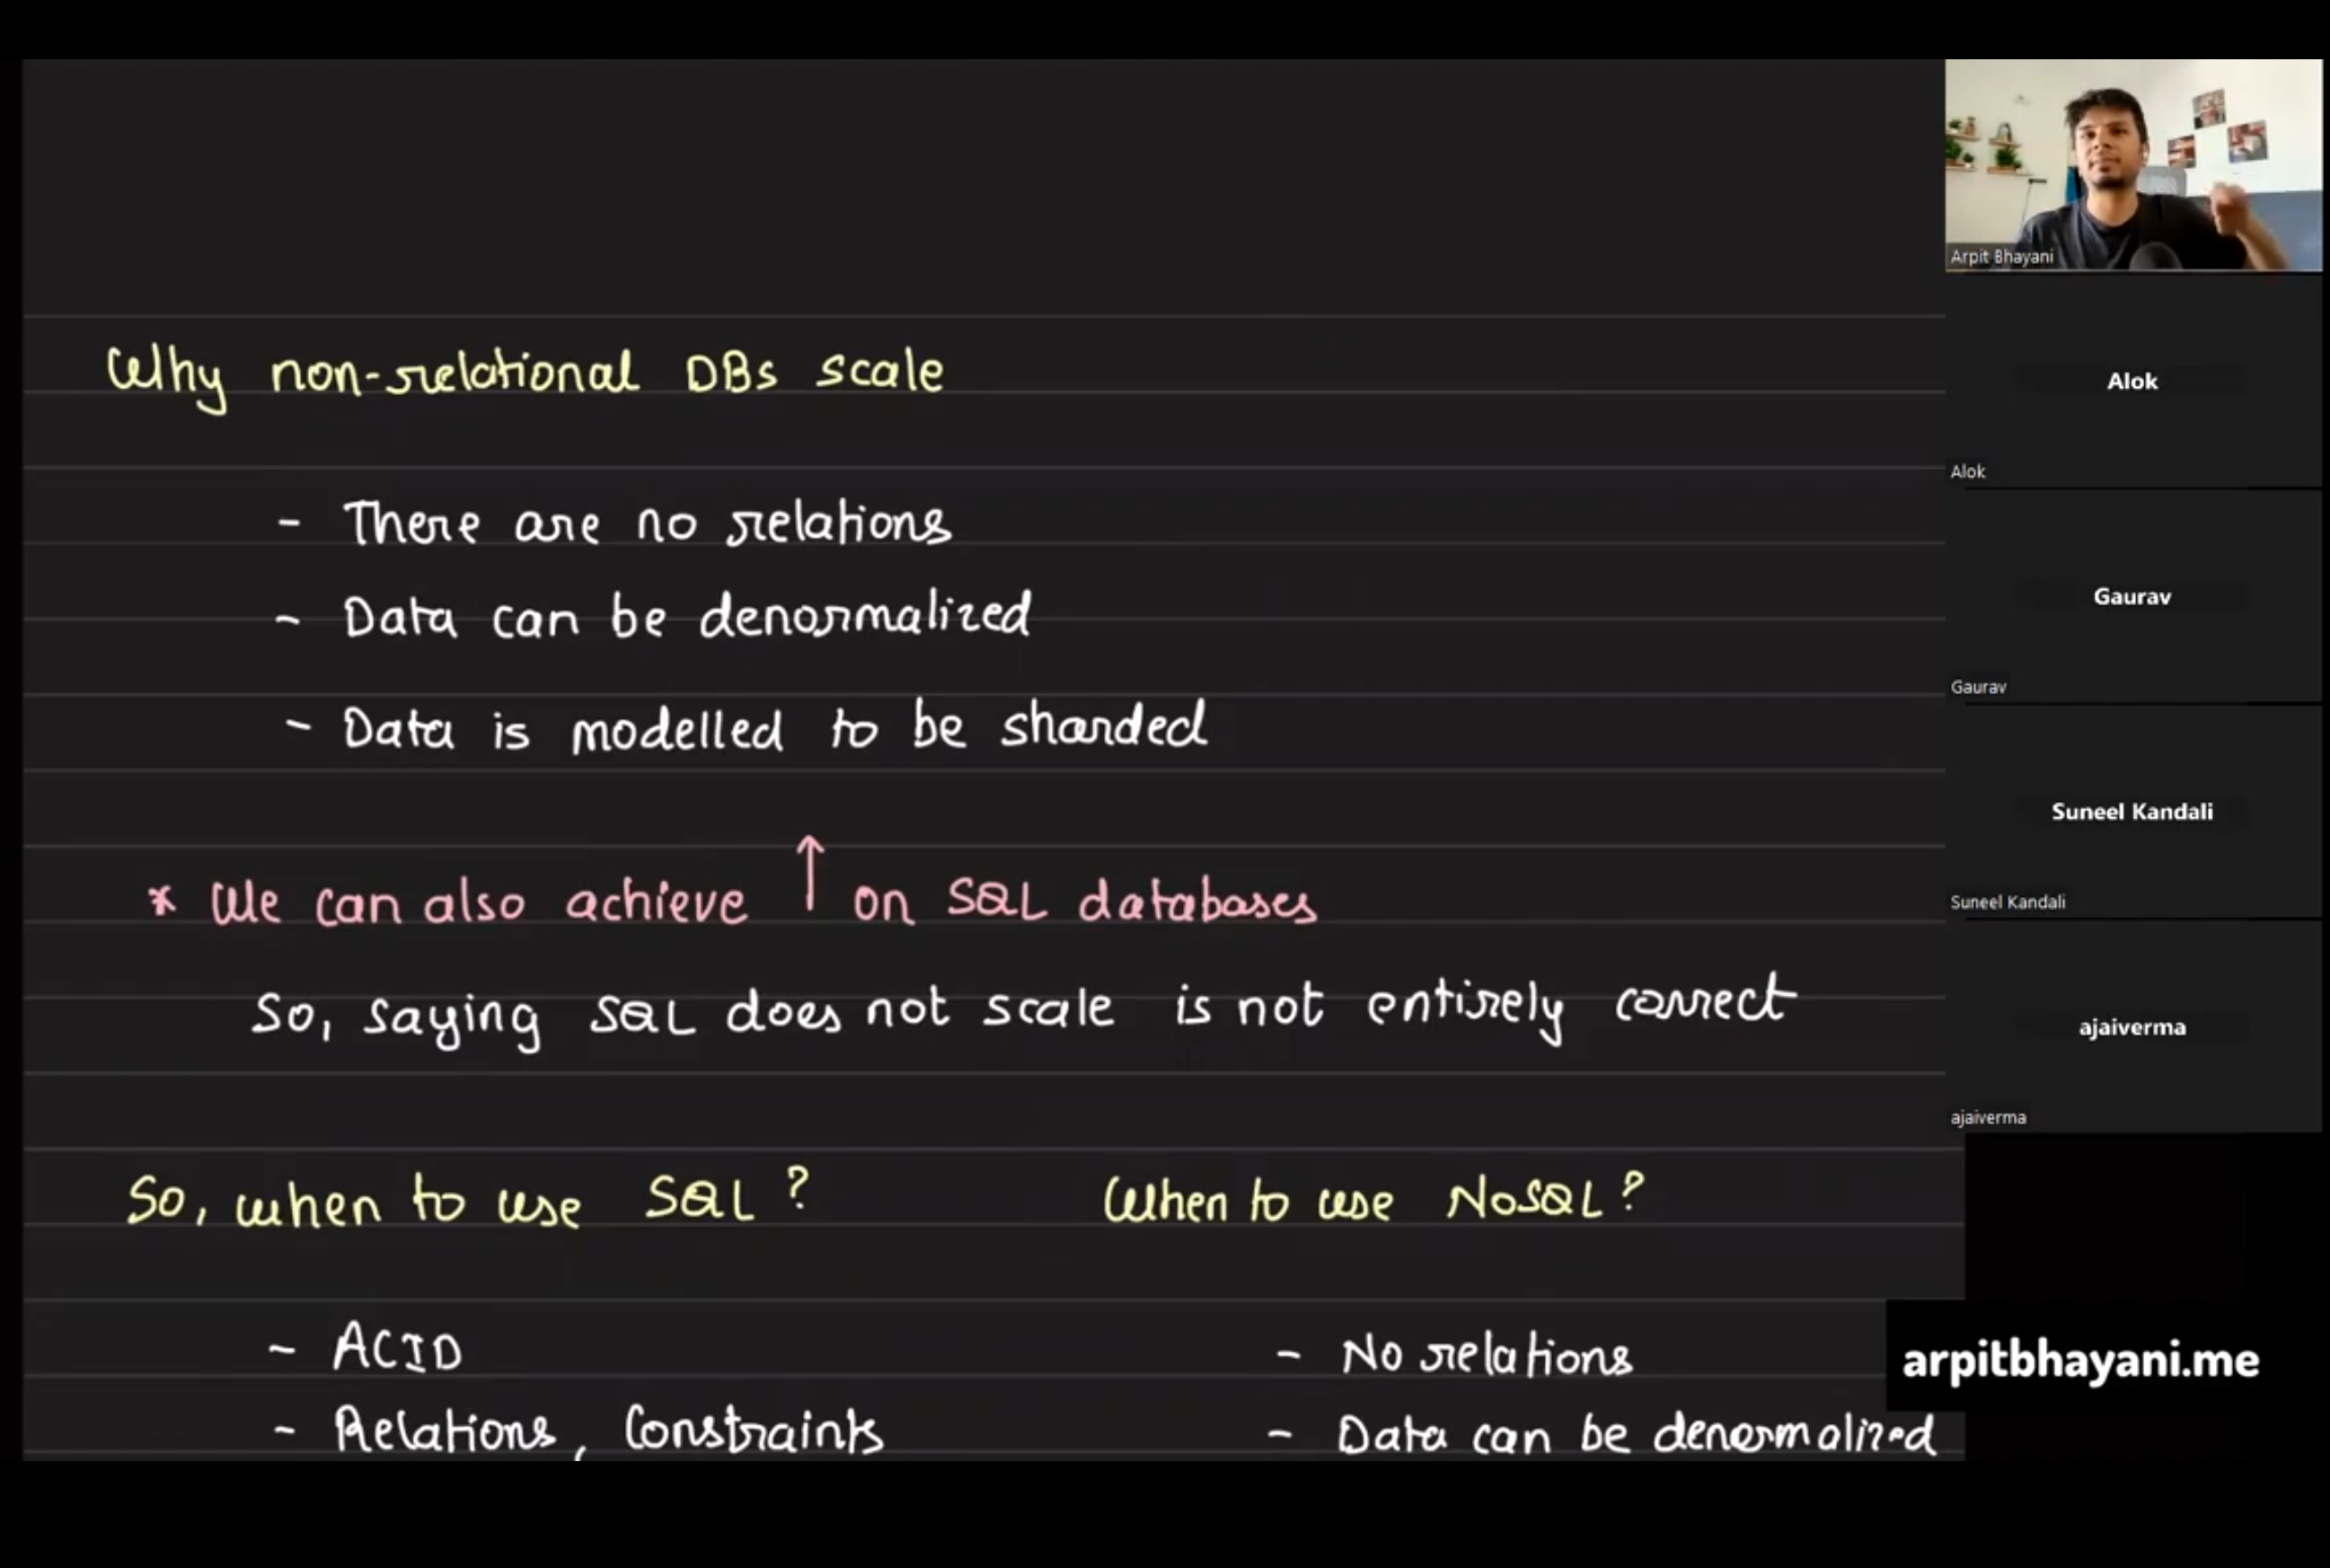 Why non-relational DBs scale
- There are no relations
- Data can be denormalized
- Data is modelled to be sharded
* We can also achieve ↑ on SQL databases
So, saying SQL does not scale is not entirely correct
So, when to use SQL?
- ACID
- Relations, Constraints
When to use NoSQL?
- No relations
- Data can be denormalized
Arpit Bhayani
Alok
Alok
Gaurav
Gaurav
Suneel Kandali
Suneel Kandali
ajaiverma
ajaiverma
arpitbhayani.me